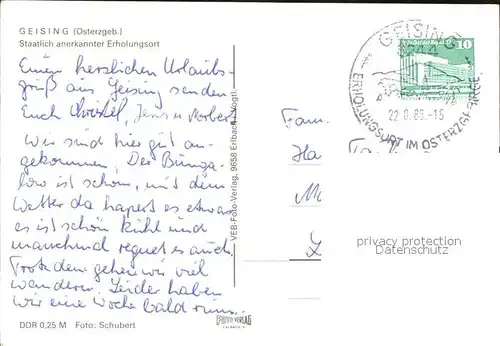 GEISING (Osterzgeb.)
Staatlich anerkannter Erholungsort
Einen herzlichen Urlaubs-
gruß aus Geising senden
Euch Christel, Jens u. Norbert
Wir sind hier gut an-
gekommen. Der Bunga-
low ist schön, mit dem
Wetter da hapert es etwas
es ist schön kühl und
manchmal regnet es auch.
Trotzdem gehen wir viel
wandern. Leider haben
wir eine Woche bald rum.
DDR 0,25 M Foto: Schubert
VEB-Foto-Verlag, 9658 Erlbach
GEISING
8244
ERHOLUNGSORT IM OSTERZGEBIRGE
22.8.83.-15
10
Fam.
privacy protection
Datenschutz